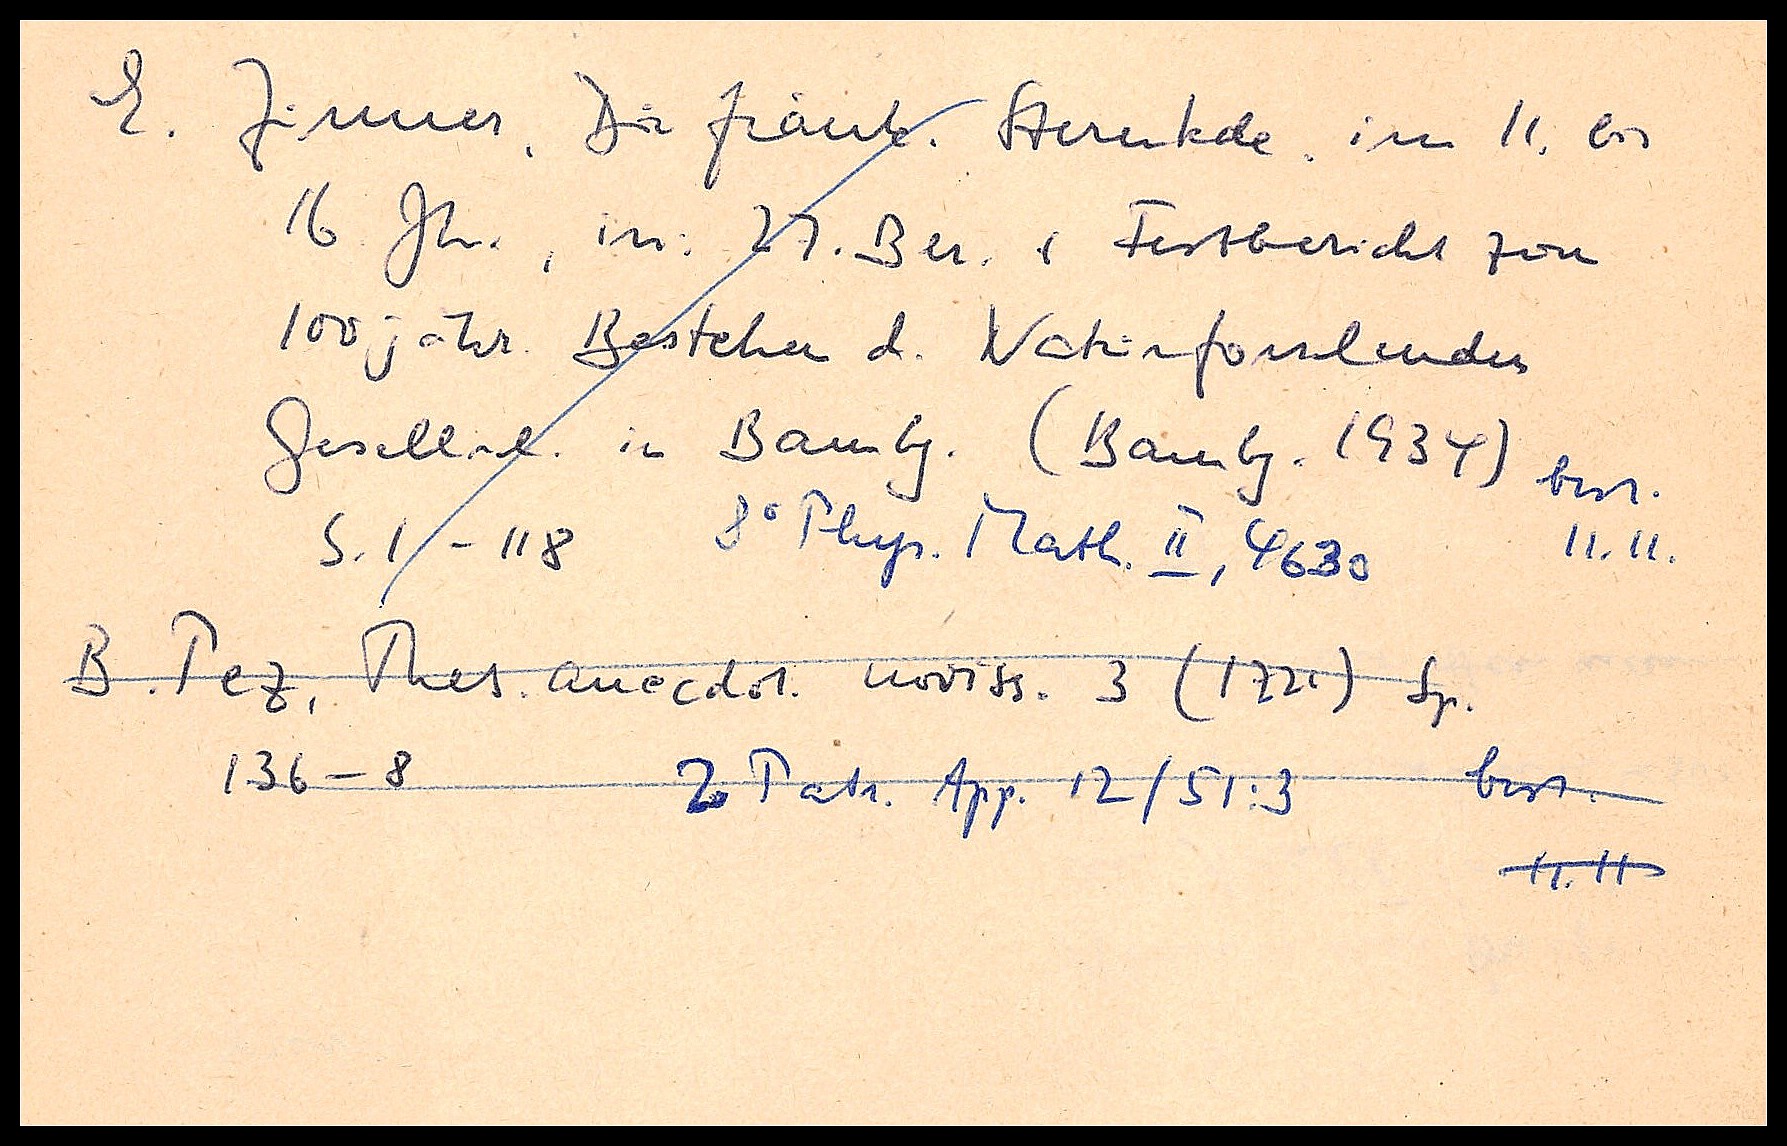 E. Zinner, Die fränk. Sternkde. im 11. bis
16. Jh., in: 27. Ber. & Festbericht zum
100jähr. Bestehen d. Naturforschenden
Gesellsch. in Bambg. (Bambg. 1934) best.
S. 1 - 118 8° Phys. Math. II, 4630 11.11.
B. Pez, Thes. anecdot. noviss. 3 (1721) Sp.
136-8 2° Patr. App. 12/51:3 best.
11.11